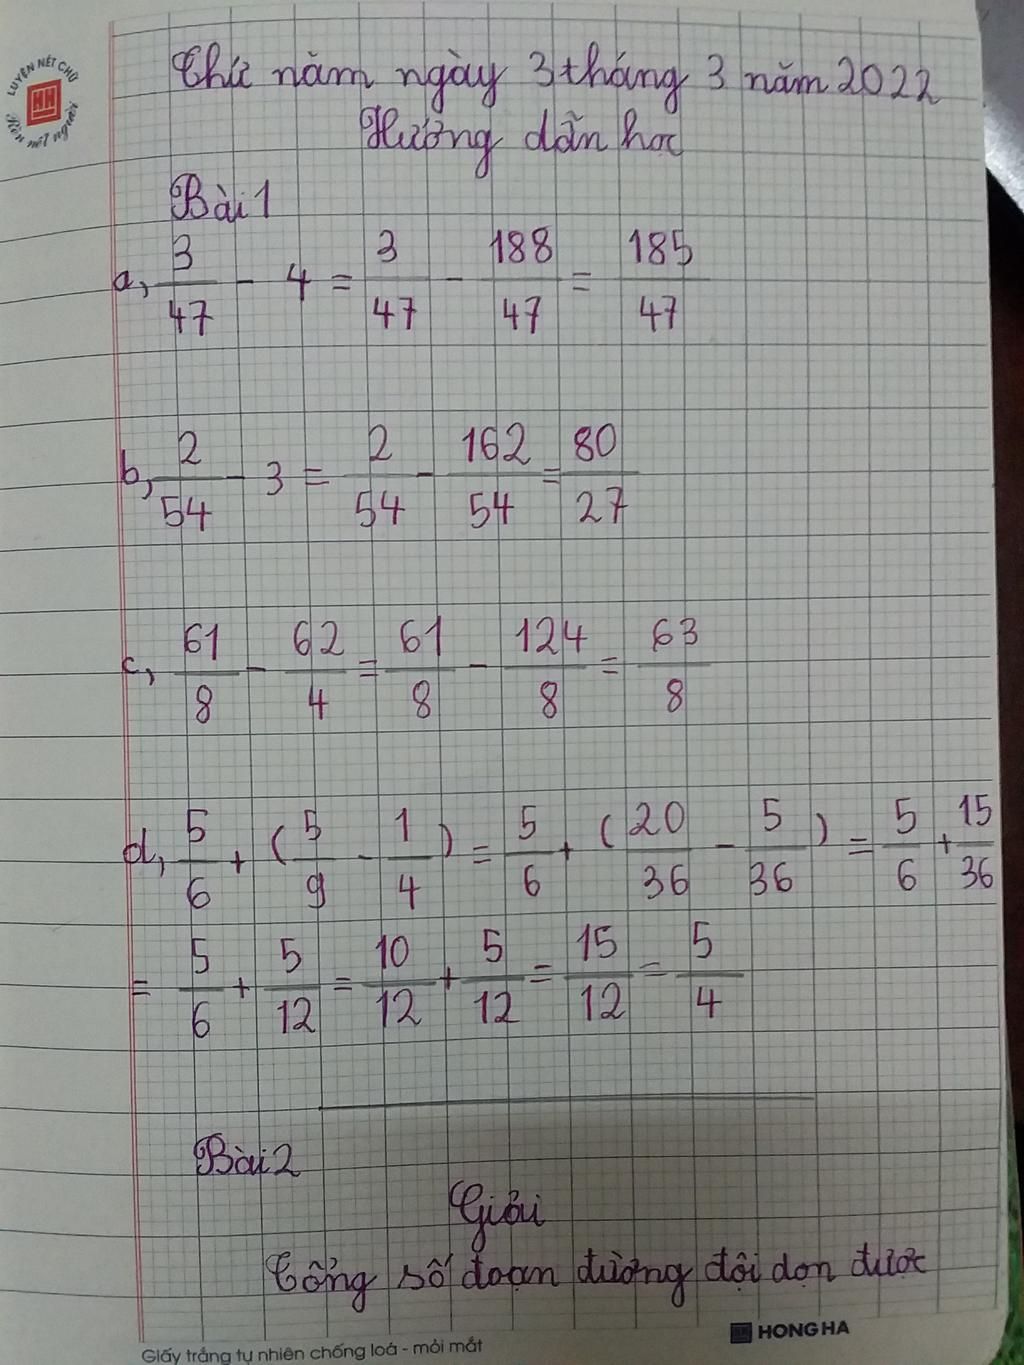 LUYỆN NÉT CHỮ
Rèn nết người
Thứ năm ngày 3 tháng 3 năm 2022
Hướng dẫn học
Bài 1
a, 3/47 - 4 = 3/47 - 188/47 = 185/47
b, 2/54 - 3 = 2/54 - 162/54 = 80/27
c, 61/8 - 62/4 = 61/8 - 124/8 = 63/8
d, 5/6 + (5/9 - 1/4) = 5/6 + (20/36 - 5/36) = 5/6 + 15/36
= 5/6 + 5/12 = 10/12 + 5/12 = 15/12 = 5/4
Bài 2
Giải
Tổng số đoạn đường đội dọn được
HONG HA
Giấy trắng tự nhiên chống loá - mỏi mắt